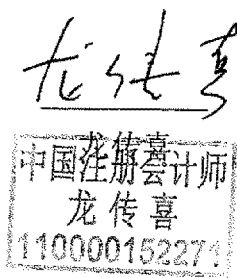 龙传喜
龙传喜
中国注册会计师
龙传喜
110000152271